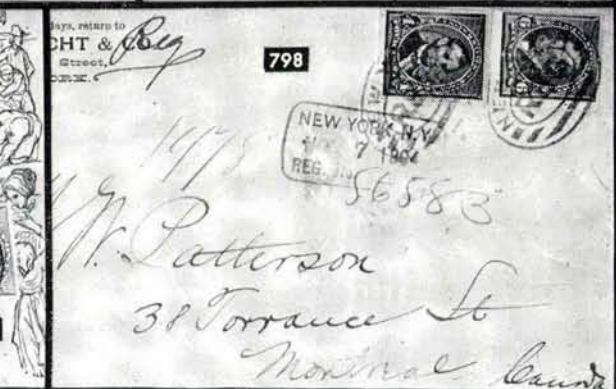 days, return to
CHT & CO.
Street,
ORK.
Reg
798
NEW YORK, N.Y.
7 1894
REG.
1978
56583
W. Patterson
38 Torrance St
Montreal Canada